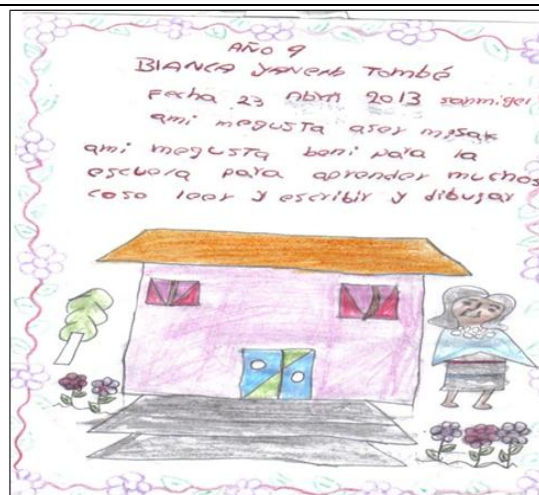 AÑO 9
BIANCA YANENH Tombé
Fecha 23 Abril 2013 sanmigel
ami megusta aser misak
ami megusta beni para la
escuela para aprender muchos
coso leer y escribir y dibujar